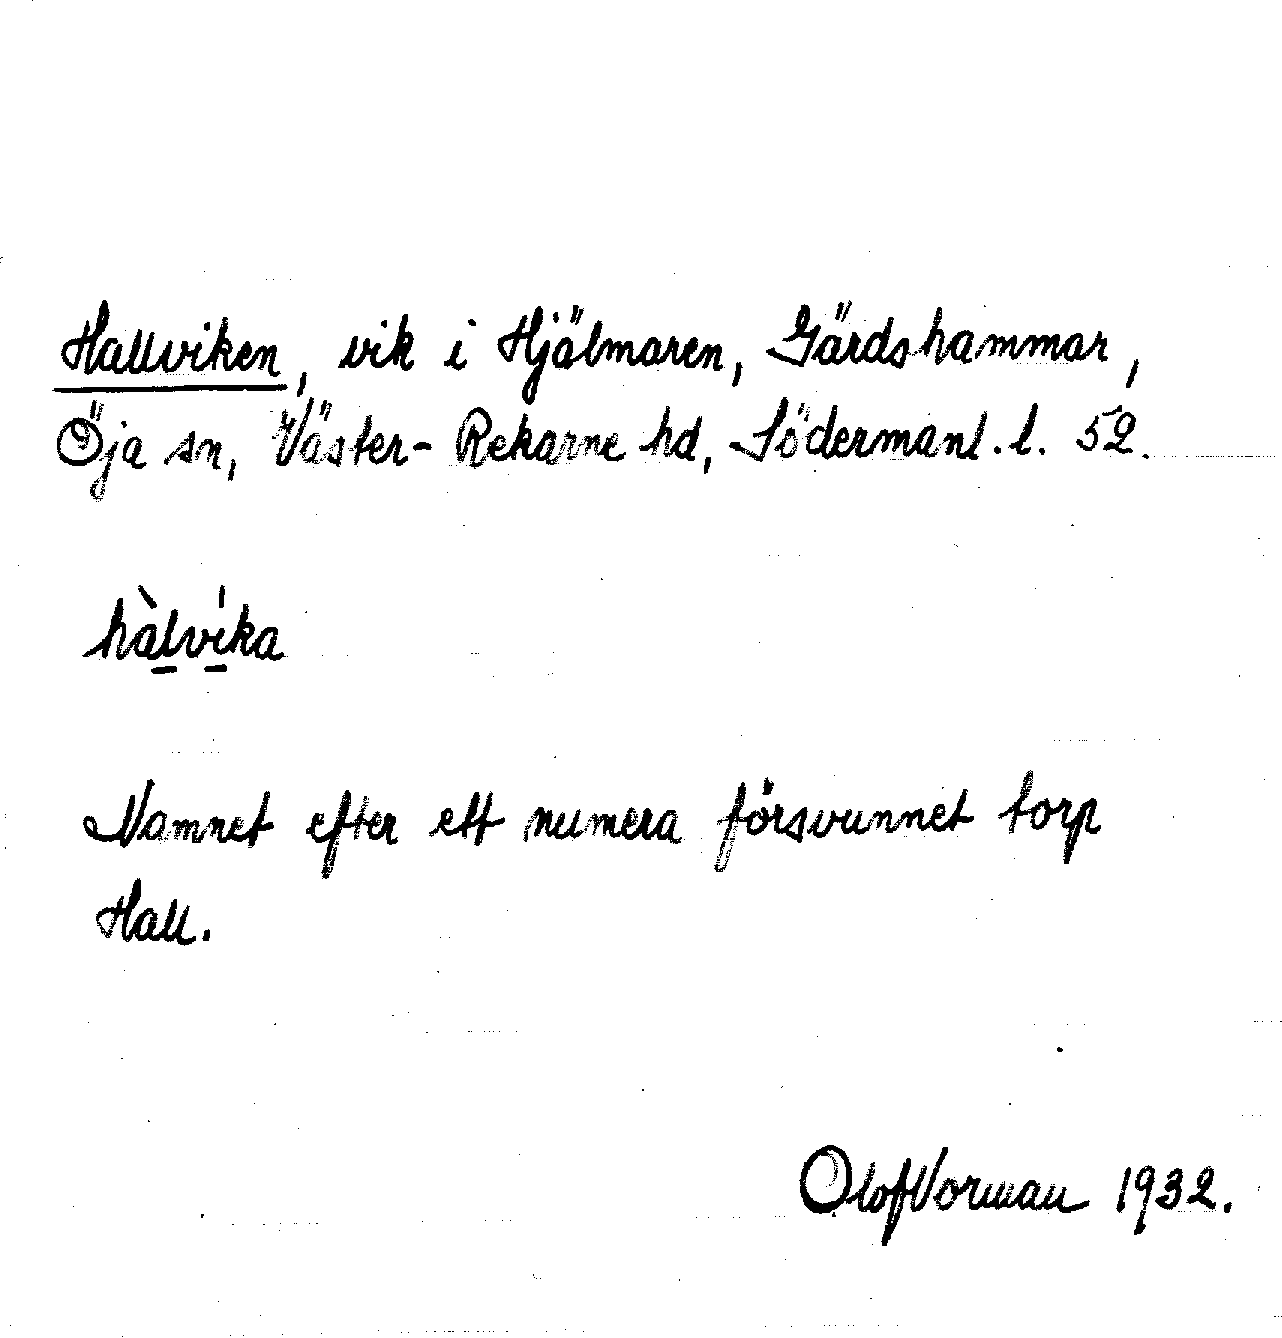 Hallviken, vik i Hjälmaren, Gärdshammar,
Öja sn, Väster-Rekarne hd, Södermanl. l. 52.
hàlvíka
Namnet efter ett numera försvunnet torp
Hall.
Olof Vorman 1932.